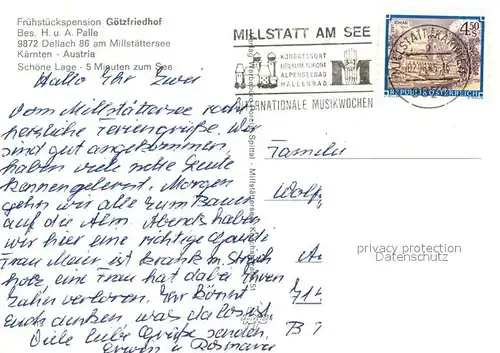 Frühstückspension Götzfriedhof
Bes. H. u. A. Palle
9872 Dellach 86 am Millstättersee
Kärnten - Austria
Schöne Lage - 5 Minuten zum See
Hallo Ihr Zwei
Vom Millstättersee
herzliche Feriengrüße. Wir
sind gut angekommen,
haben viele nette Leute
kennengelernt. Morgen
gehn wir alle zum Bauer
auf die Alm. Abends haben
wir hier eine richtige Gaudi
Frau Maier ist krank m. Streich
holz, eine Frau hat dabei Ihren
Zahn verloren. Ihr könnt
Euch denken, was da los ist.
Viele liebe Grüße senden
Erwin u. Rosmarie
MILLSTATT AM SEE
KONGRESSORT
HELIUMKIRCHE
ALPENSEEBAD
HALLENBAD
INTERNATIONALE MUSIKWOCHEN
4.50
REPUBLIK ÖSTERREICH
Familie
Wolf
A
714
B
privacy protection
Datenschutz